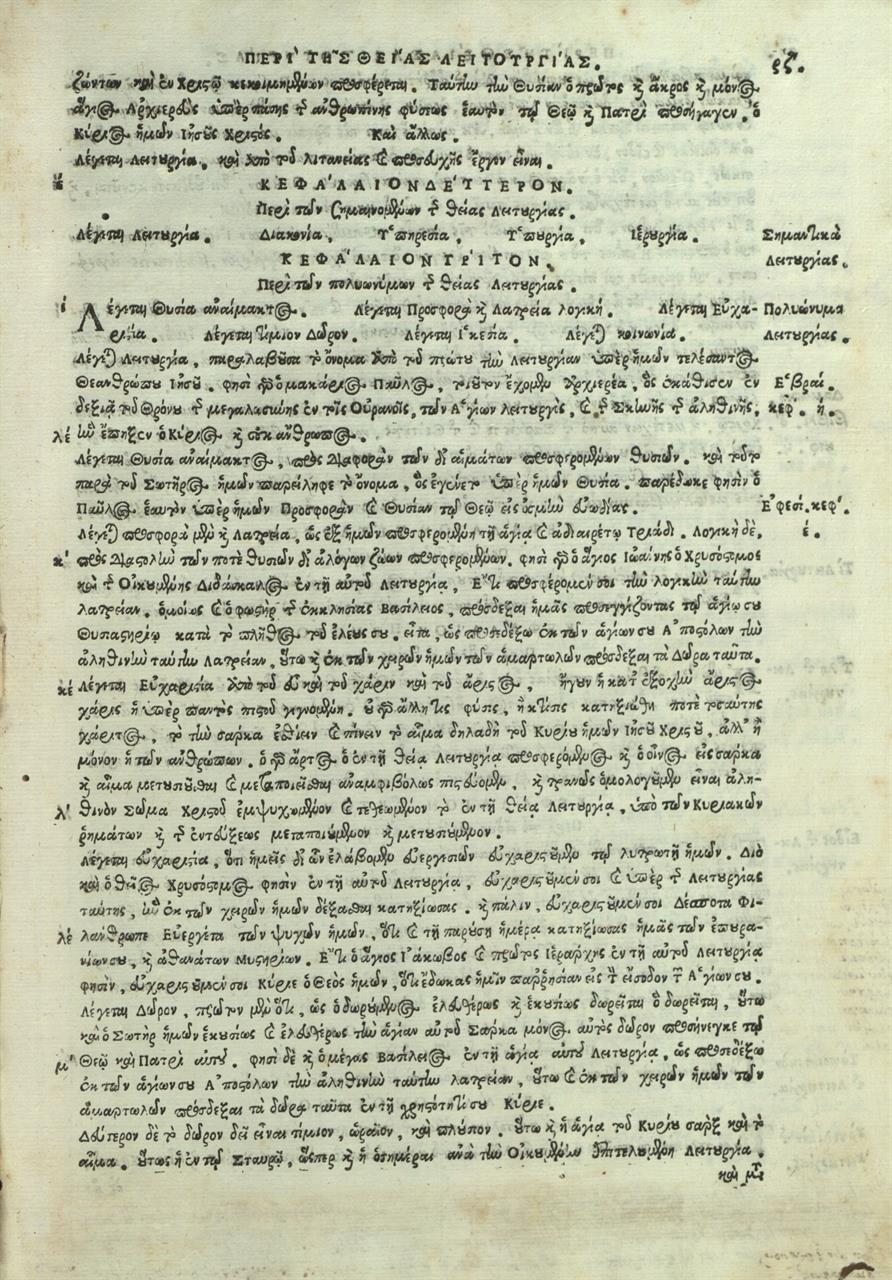 ΠΕΡΙ ΤΗΣ ΘΕΙΑΣ ΛΕΙΤΟΥΡΓΙΑΣ. ρζ.
ζώντων καὶ ἐν Χριστῷ κεκοιμημένων προσφέρεται. Ταύτην τὴν θυσίαν ὁ πρῶτος καὶ ἄκρος καὶ μόνος
ἅγιος Ἀρχιερεὺς ὑπὲρ πάσης τῆς ἀνθρωπίνης φύσεως ἑαυτὸν τῷ Θεῷ καὶ Πατρὶ προσήγαγεν, ὁ
Κύριος ἡμῶν Ἰησοῦς Χριστός. Καὶ ἄλλως.
Λέγεται Λειτουργία, καὶ ἀπὸ τοῦ λιτανείας καὶ προσευχῆς ἔργον εἶναι.
ΚΕΦΑΛΑΙΟΝ ΔΕΥΤΕΡΟΝ.
Περὶ τῶν σημαινομένων τῆς θείας Λειτουργίας.
Λέγεται Λειτουργία. Διακονία, Ὑπηρεσία, Ὑπουργία, Ἱερουργία. Σημαντικὰ
ΚΕΦΑΛΑΙΟΝ ΤΡΙΤΟΝ. Λειτουργίας.
Περὶ τῶν πολυωνύμων τῆς θείας Λειτουργίας.
ί Λέγεται Θυσία ἀναίμακτος. Λέγεται Προσφορὰ καὶ Λατρεία λογική. Λέγεται Εὐχα- Πολυώνυμα
ριστία. Λέγεται τίμιον Δῶρον. Λέγεται Ἱκεσία. Λέγεται κοινωνία. Λειτουργίας.
Λέγεται Λειτουργία, παραλαβοῦσα τὸ ὄνομα ἀπὸ τοῦ πρώτου τὴν Λειτουργίαν ὑπὲρ ἡμῶν τελέσαντος
Θεανθρώπου Ἰησοῦ. φησὶ γὰρ ὁ μακάριος Παῦλος, τοιοῦτον ἔχομεν Ἀρχιερέα, ὃς ἐκάθισεν ἐν Ἑβραί.
δεξιᾷ τοῦ Θρόνου τῆς μεγαλωσύνης ἐν τοῖς Οὐρανοῖς, τῶν Ἁγίων λειτουργὸς, καὶ τῆς Σκηνῆς τῆς ἀληθινῆς, κεφ. ή.
ιέ ἣν ἔπηξεν ὁ Κύριος καὶ οὐκ ἄνθρωπος.
Λέγεται Θυσία ἀναίμακτος, πρὸς διαφορὰν τῶν δι αἱμάτων προσφερομένων θυσιῶν. καὶ τοῦτο
παρὰ τοῦ Σωτῆρος ἡμῶν παρείληφε τὸ ὄνομα, ὃς ἐγένετο ὑπὲρ ἡμῶν Θυσία. παρέδωκε φησὶν ὁ
Παῦλος ἑαυτὸν ὑπὲρ ἡμῶν Προσφορὰν καὶ Θυσίαν τῷ Θεῷ εἰς ὀσμὴν εὐωδίας. Ἐφεσί. κεφ.
Λέγεται προσφορὰ μὲν καὶ Λατρεία, ὡς ἐξ ἡμῶν προσφερομένη τῇ ἁγίᾳ καὶ ἀδιαιρέτῳ Τριάδι. Λογικὴ δὲ, έ.
κ πρὸς διαστολὴν τῶν ποτὲ θυσιῶν δι ἀλόγων ζώων προσφερομένων. φησὶ γὰρ ὁ ἅγιος Ἰωάννης ὁ Χρυσόστομος
καὶ τῆς Οἰκουμένης Διδάσκαλος ἐν τῇ αὐτοῦ Λειτουργίᾳ, Ἔτι προσφέρομέν σοι τὴν λογικὴν ταύτην
λατρείαν. ὁμοίως καὶ ὁ φωστὴρ τῆς ἐκκλησίας Βασίλειος, πρόσδεξαι ἡμᾶς προσεγγίζοντας τῷ ἁγίῳ σου
Θυσιαστηρίῳ κατὰ τὸ πλῆθος τοῦ ἐλέους σου. εἶτα, ὡς προσεδέξω ἐκ τῶν ἁγίων σου Ἀποστόλων τὴν
ἀληθινὴν ταύτην Λατρείαν, οὕτω καὶ ἐκ τῶν χειρῶν ἡμῶν τῶν ἁμαρτωλῶν πρόσδεξαι τὰ Δῶρα ταῦτα.
κέ Λέγεται Εὐχαριστία ἀπὸ τοῦ εὖ καὶ τοῦ χάριν καὶ τοῦ ἄριστος, ἤγουν ἡ κατ ἐξοχὴν ἄριστος
χάρις ἡ ὑπὲρ παντὸς πιστοῦ γιγνομένη. οὐ γὰρ ἄλλη τις φύσις, ἢ κτίσις κατηξιώθη ποτὲ τοσαύτης
χάριτος, τὸ τὴν σάρκα ἐσθίειν καὶ πίνειν τὸ αἷμα δηλαδὴ τοῦ Κυρίου ἡμῶν Ἰησοῦ Χριστοῦ, ἀλλ ἢ
μόνον ἡ τῶν ἀνθρώπων. ὁ γὰρ ἄρτος ὁ ἐν τῇ θείᾳ Λειτουργίᾳ προσφερόμενος καὶ ὁ οἶνος εἰς σάρκα
καὶ αἷμα μετουσιοῦσθαι καὶ μεταποιεῖσθαι ἀναμφιβόλως πιστεύομεν, καὶ τρανῶς ὁμολογοῦμεν εἶναι ἀλη-
λ θινὸν Σῶμα Χριστοῦ ἐμψυχωμένον καὶ τεθεωμένον τὸ ἐν τῇ θείᾳ Λειτουργίᾳ, ὑπὸ τῶν Κυριακῶν
ῥημάτων καὶ τῆς ἐντεύξεως μεταποιούμενον καὶ μετουσιούμενον.
Λέγεται εὐχαριστία, ὅτι ἡμεῖς δι ὧν ἐλάβομεν εὐεργεσιῶν εὐχαριστοῦμεν τῷ λυτρωτῇ ἡμῶν. Διὸ
καὶ ὁ θεῖος Χρυσόστομος φησὶν ἐν τῇ αὐτοῦ Λειτουργίᾳ, εὐχαριστοῦμέν σοι καὶ ὑπὲρ τῆς Λειτουργίας
ταύτης, ἣν ἐκ τῶν χειρῶν ἡμῶν δέξασθαι κατηξίωσας. καὶ πάλιν, εὐχαριστοῦμέν σοι Δέσποτα Φι-
λέ λάνθρωπε Εὐεργέτα τῶν ψυχῶν ἡμῶν, ὅτι καὶ τῇ παρούσῃ ἡμέρᾳ κατηξίωσας ἡμᾶς τῶν ἐπουρα-
νίων σου, καὶ ἀθανάτων Μυστηρίων. Ἔτι ὁ ἅγιος Ἰάκωβος καὶ πρῶτος Ἱεράρχης ἐν τῇ αὐτοῦ Λειτουργίᾳ
φησὶν, εὐχαριστοῦμέν σοι Κύριε ὁ Θεὸς ἡμῶν, ὅτι ἔδωκας ἡμῖν παρρησίαν εἰς τὴν εἴσοδον τῶν Ἁγίων σου.
Λέγεται Δῶρον, πρῶτον μὲν ὅτι, ὡς ὁ δωρούμενος ἐλευθέρως καὶ ἑκουσίως δωρεῖται ὃ δωρεῖται, οὕτω
καὶ ὁ Σωτὴρ ἡμῶν ἑκουσίως καὶ ἐλευθέρως τὴν ἁγίαν αὐτοῦ Σάρκα μόνος αὐτὸς δῶρον προσήνεγκε τῷ
μ Θεῷ καὶ Πατρὶ αὐτοῦ. φησὶ δὲ καὶ ὁ μέγας Βασίλειος ἐν τῇ ἁγίᾳ αὐτοῦ Λειτουργίᾳ, ὡς προσεδέξω
ἐκ τῶν ἁγίων σου Ἀποστόλων τὴν ἀληθινὴν ταύτην λατρείαν, οὕτω καὶ ἐκ τῶν χειρῶν ἡμῶν τῶν
ἁμαρτωλῶν πρόσδεξαι τὰ δῶρα ταῦτα ἐν τῇ χρηστότητί σου Κύριε.
Δεύτερον δὲ τὸ δῶρον δεῖ εἶναι τίμιον, ὡραῖον, καὶ πλύπον. οὕτω καὶ ἡ ἁγία τοῦ Κυρίου σὰρξ καὶ τὸ
αἷμα. οὕτως ἡ ἐν τῷ Σταυρῷ, ὥσπερ καὶ ἡ ὁσημέραι ἀνὰ τὴν Οἰκουμένην ἐπιτελουμένη Λειτουργία.
καὶ μετ